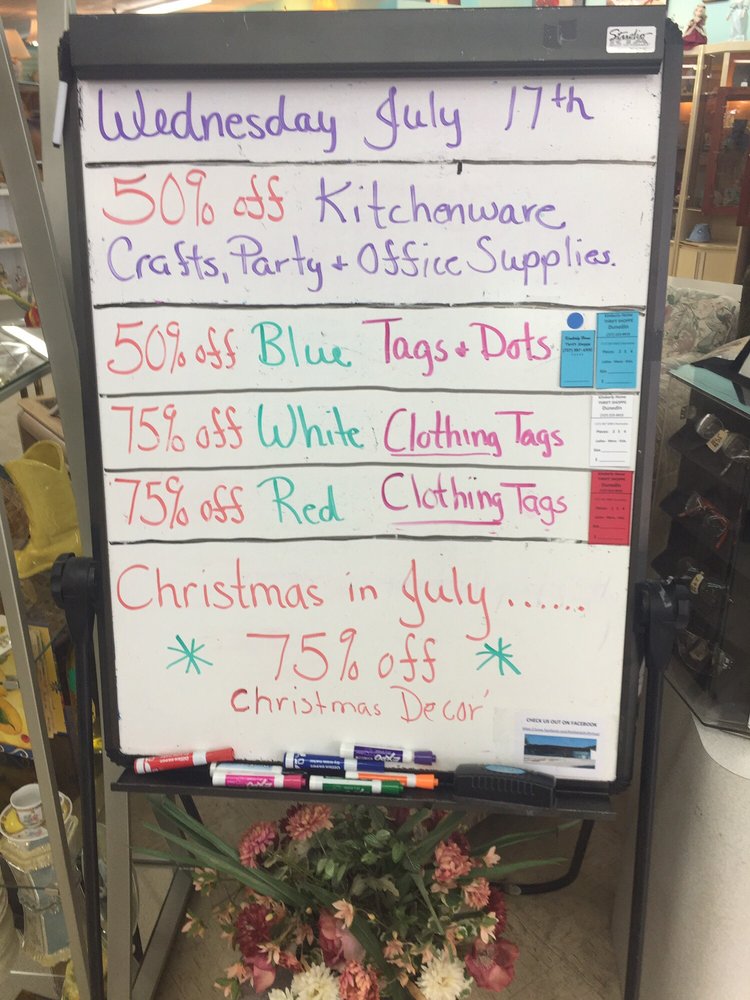 Studio
Wednesday July 17th
50% off Kitchenware
Crafts, Party + Office Supplies.
50% off Blue Tags + Dots
75% off White Clothing Tags
75% off Red Clothing Tags
Dunedin
Dunedin
Dunedin
Christmas in July ......
* 75% off *
Christmas Decor'
CHECK US OUT ON FACEBOOK